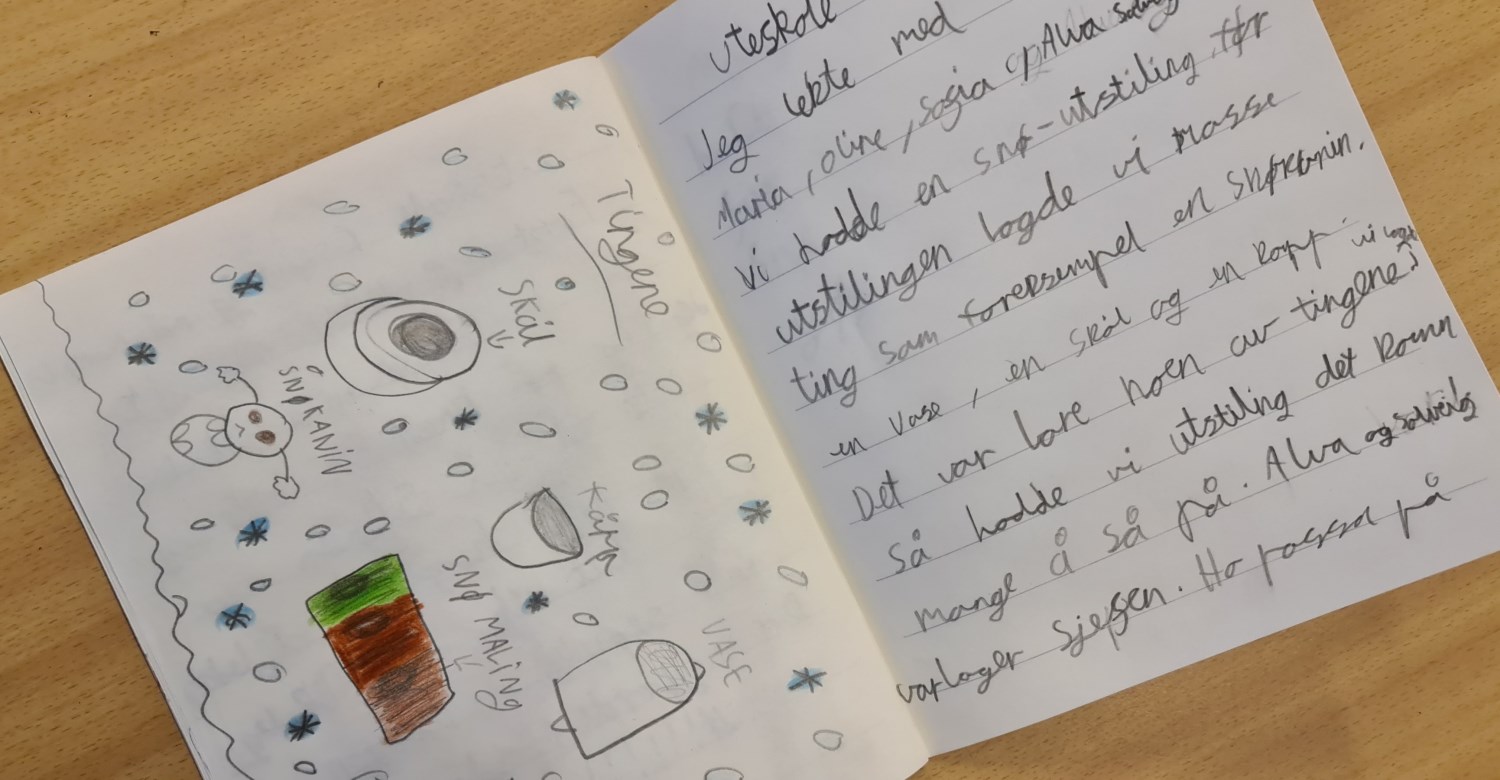 Tingene
SKål
SNØKANIN
Kåpp
SNØ MALING
VASE
uteskole
Jeg lekte med
Maria, oline, sofia, Alva
vi hadde en snø-utstiling før
utstilingen lagde vi masse
ting som foreksempel en snøkanin.
en vase, en skål og en kopp
Det var bare noen av tingene
så hadde vi utstiling det kom
mange å så på. Alva og solveig
var lager sjefen. Ho passa på